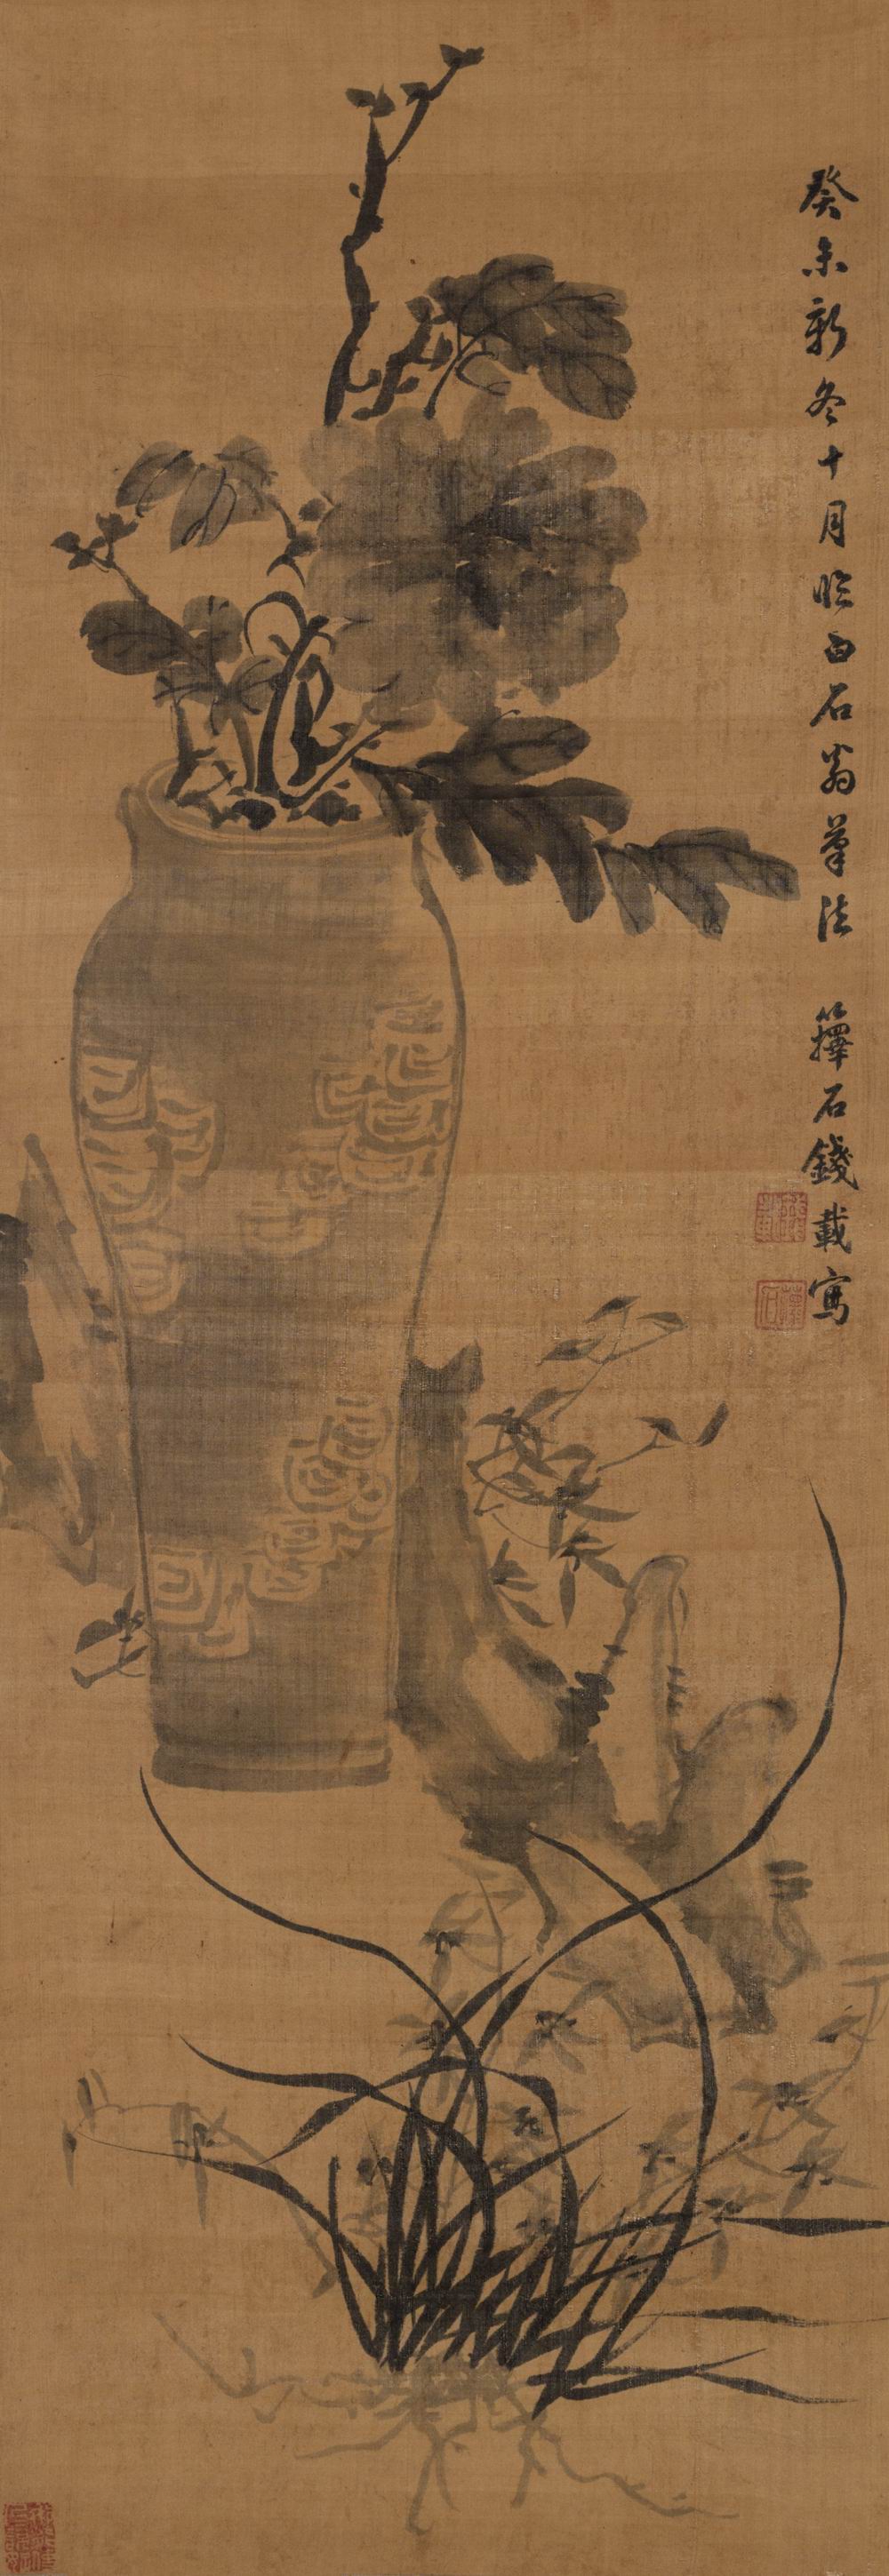 癸未新冬十月臨白石翁筆法　籜石錢載寫
錢載
籜石